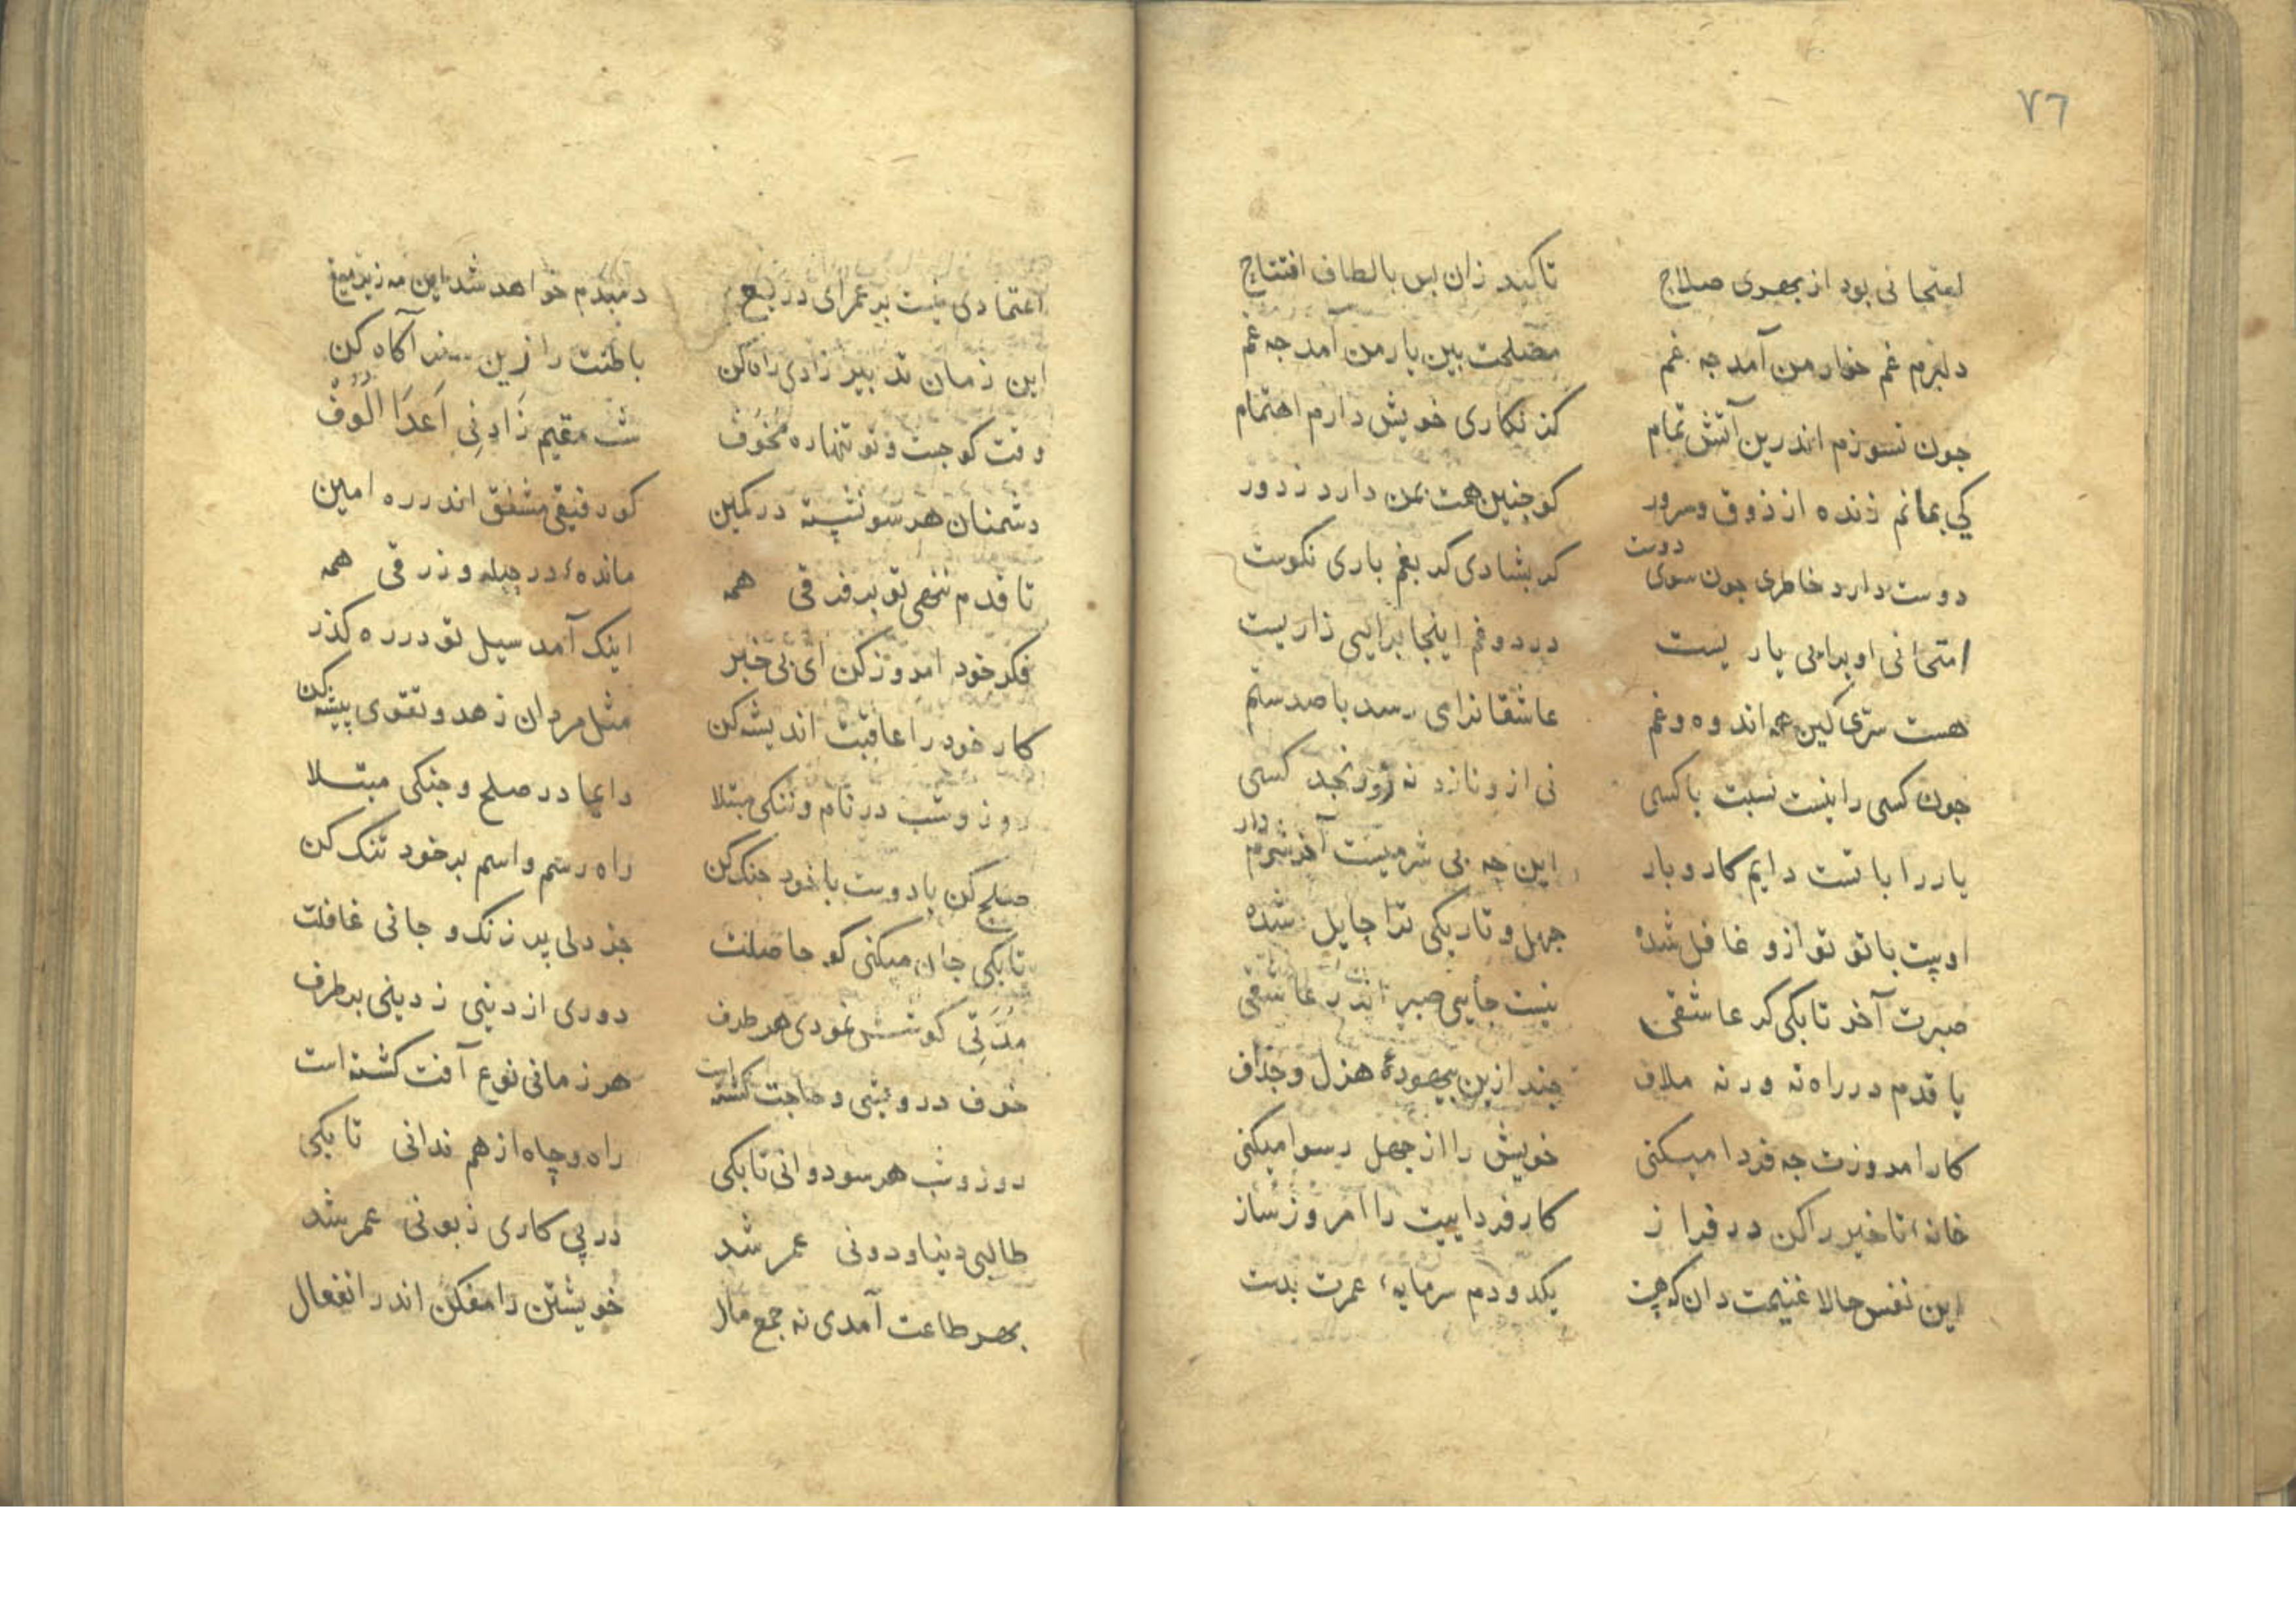 ٧٦
امتحانی بود از بهری صلاج تا کند زان بس بالطاف افتتاج
دلبرم غم خوار من آمد جه غم مصلحت بین یار من آمد جه غم
جون نسوزم اندرین آتش تمام کز نکاری خویش دارم اهتمام
کی بمانم زنده از ذوق و سرور کو جنین همت بمن دارد ز دور
دوست دارد خاطری جون سوی دوست کر بشادی کر بغم باری نکوست
امتحانی او برایی یار یست درد و غم اینجا برایی زار یست
هست سری کین همه اندوه و غم عاشقانرا می رسد با صد ستم
جون کسی را نیست نسبت با کسی نی ازو نازد نه زو رنجد کسی
یار را با تست دایم کار و بار این جه بی شرمیست آخر شرم دار
اوست با تو تو ازو غافل شده جهل و تاریکی ترا حایل شده
صبرت آخر تا بکی کر عاشقی نیست جایی صبر اندر عاشقی
یا قدم در راه نه ور نه ملاف جند ازین بیهودهٔ هزل و جذاف
کار امروزت جه فردا میکنی خویش را از جهل رسوا میکنی
خانهٔ تاخیر را کن در فراز کار فردا ییت را امروز ساز
این نفس حالا غنیمت دان که هست یکدو دم سرمایهٔ عمرت بدست
اعتمادی نیست بر عمر ای دریغ دمبدم خواهد شد این مه زیر میغ
این زمان تدبیر زادی راه کن باطنت را زین سفر آکاه کن
وقت کوجست و تو تنها ره مخوف شب مقیم زاد نی اعدا الوف
دشمنان هر سو نشسته در کمین کو رفیقی مشفق اندر ره امین
تا قدم ننهی تو بر فرقی همه ماندهٔ در حیله و زرقی همه
فکر خود امروز کن ای بی خبر اینک آمد سیل تو در ره کذر
کار خود را عاقبت اندیشه کن مثل مردان زهد و تقوی پیشه کن
روز و شب در نام و ننکی مبتلا دایما در صلح و جنکی مبتلا
صلح کن با دوست با خود جنک کن راه رسم و اسم بر خود تنک کن
تا بکی جان میکنی کو حاصلت جز دلی پر زنک و جانی غافلت
مدتی کوشش نمودی هر طرف دوری از دنیی ز دینی بر طرف
خوف درویشی و حاجت کشته است هر زمانی نوع آفت کشته است
روز و شب هر سو دوانی تا بکی راه و چاه از هم ندانی تا بکی
طالبی دنیا و دونی عمر شد در پی کاری زبونی عمر شد
بهر طاعت آمدی نه جمع مال خویشتن را مفکن اندر انفعال